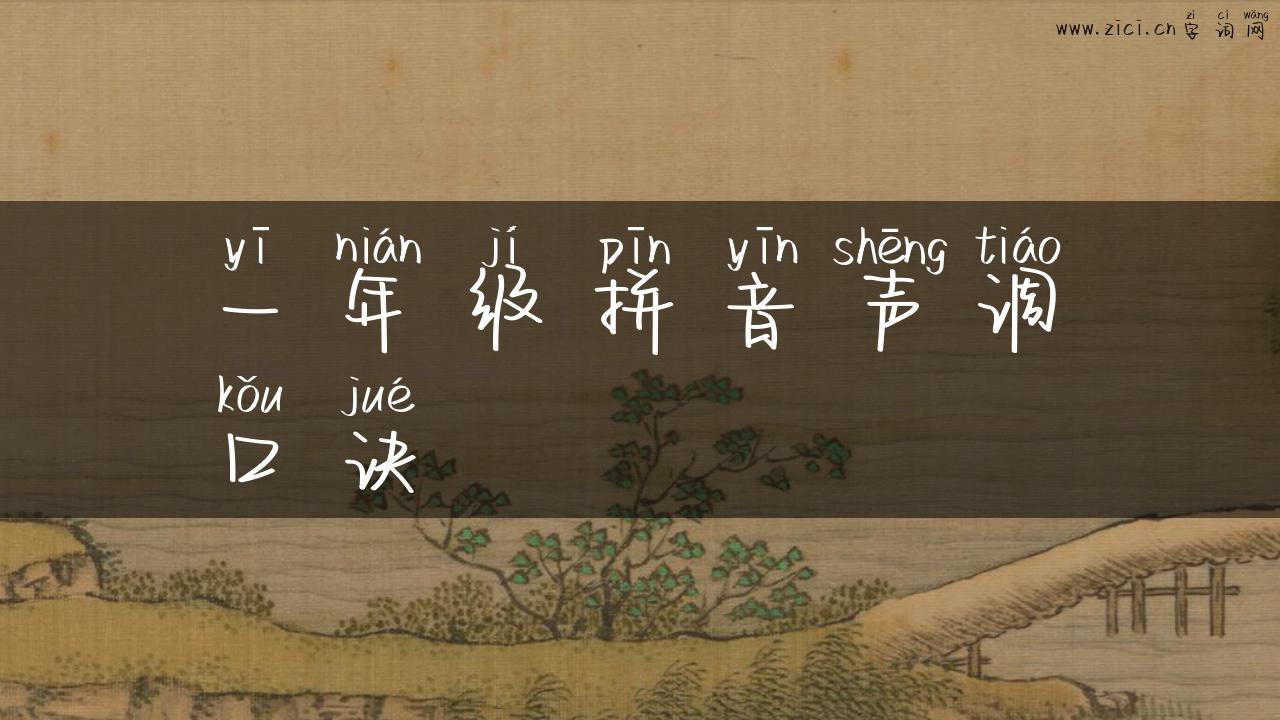 zì cí wǎng
www.zici.cn 字词网
yī nián jí pīn yīn shēng tiáo
一年级拼音声调
kǒu jué
口诀